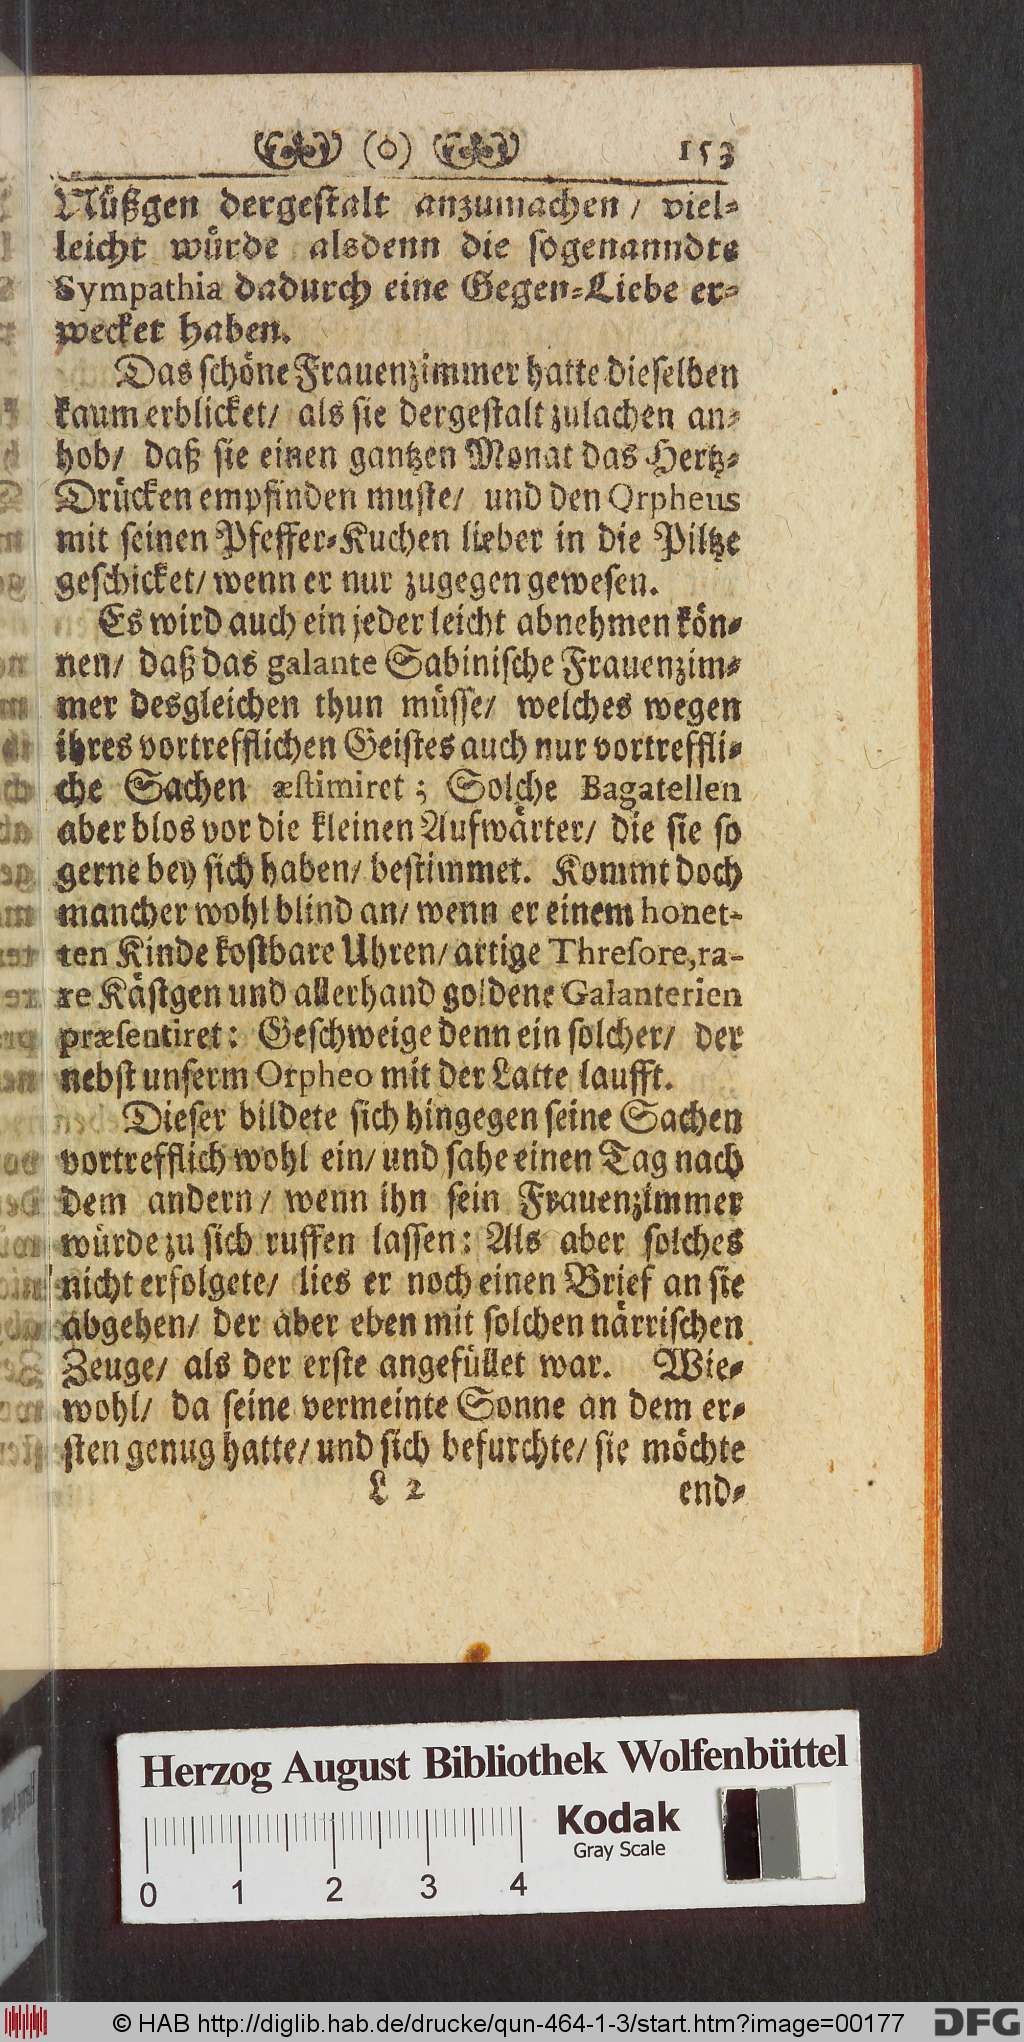 (o) 153
Nüßgen dergestalt anzumachen / viel-
leicht würde alsdenn die sogenanndte
Sympathia dadurch eine Gegen-Liebe er-
wecket haben.
Das schöne Frauenzimmer hatte dieselben
kaum erblicket/ als sie dergestalt zulachen an-
hob/ daß sie einen gantzen Monat das Hertz-
Drücken empfinden muste/ und den Orpheus
mit seinen Pfeffer-Kuchen lieber in die Piltze
geschicket/ wenn er nur zugegen gewesen.
Es wird auch ein jeder leicht abnehmen kön-
nen/ daß das galante Sabinische Frauenzim-
mer desgleichen thun müsse/ welches wegen
ihres vortrefflichen Geistes auch nur vortreffli-
che Sachen æstimiret ; Solche Bagatellen
aber blos vor die kleinen Aufwärter/ die sie so
gerne bey sich haben/ bestimmet. Kommt doch
mancher wohl blind an/ wenn er einem honet-
ten Kinde kostbare Uhren/ artige Thresore, ra-
re Kästgen und allerhand goldene Galanterien
præsentiret: Geschweige denn ein solcher/ der
nebst unserm Orpheo mit der Latte laufft.
Dieser bildete sich hingegen seine Sachen
vortrefflich wohl ein/ und sahe einen Tag nach
dem andern / wenn ihn sein Frauenzimmer
würde zu sich ruffen lassen: Als aber solches
nicht erfolgete/ lies er noch einen Brief an sie
abgehen/ der aber eben mit solchen närrischen
Zeuge/ als der erste angefüllet war. Wie-
wohl/ da seine vermeinte Sonne an dem er-
sten genug hatte/ und sich befurchte/ sie möchte
L 2 end-
Herzog August Bibliothek Wolfenbüttel
Kodak
Gray Scale
0 1 2 3 4
© HAB http://diglib.hab.de/drucke/qun-464-1-3/start.htm?image=00177 DFG